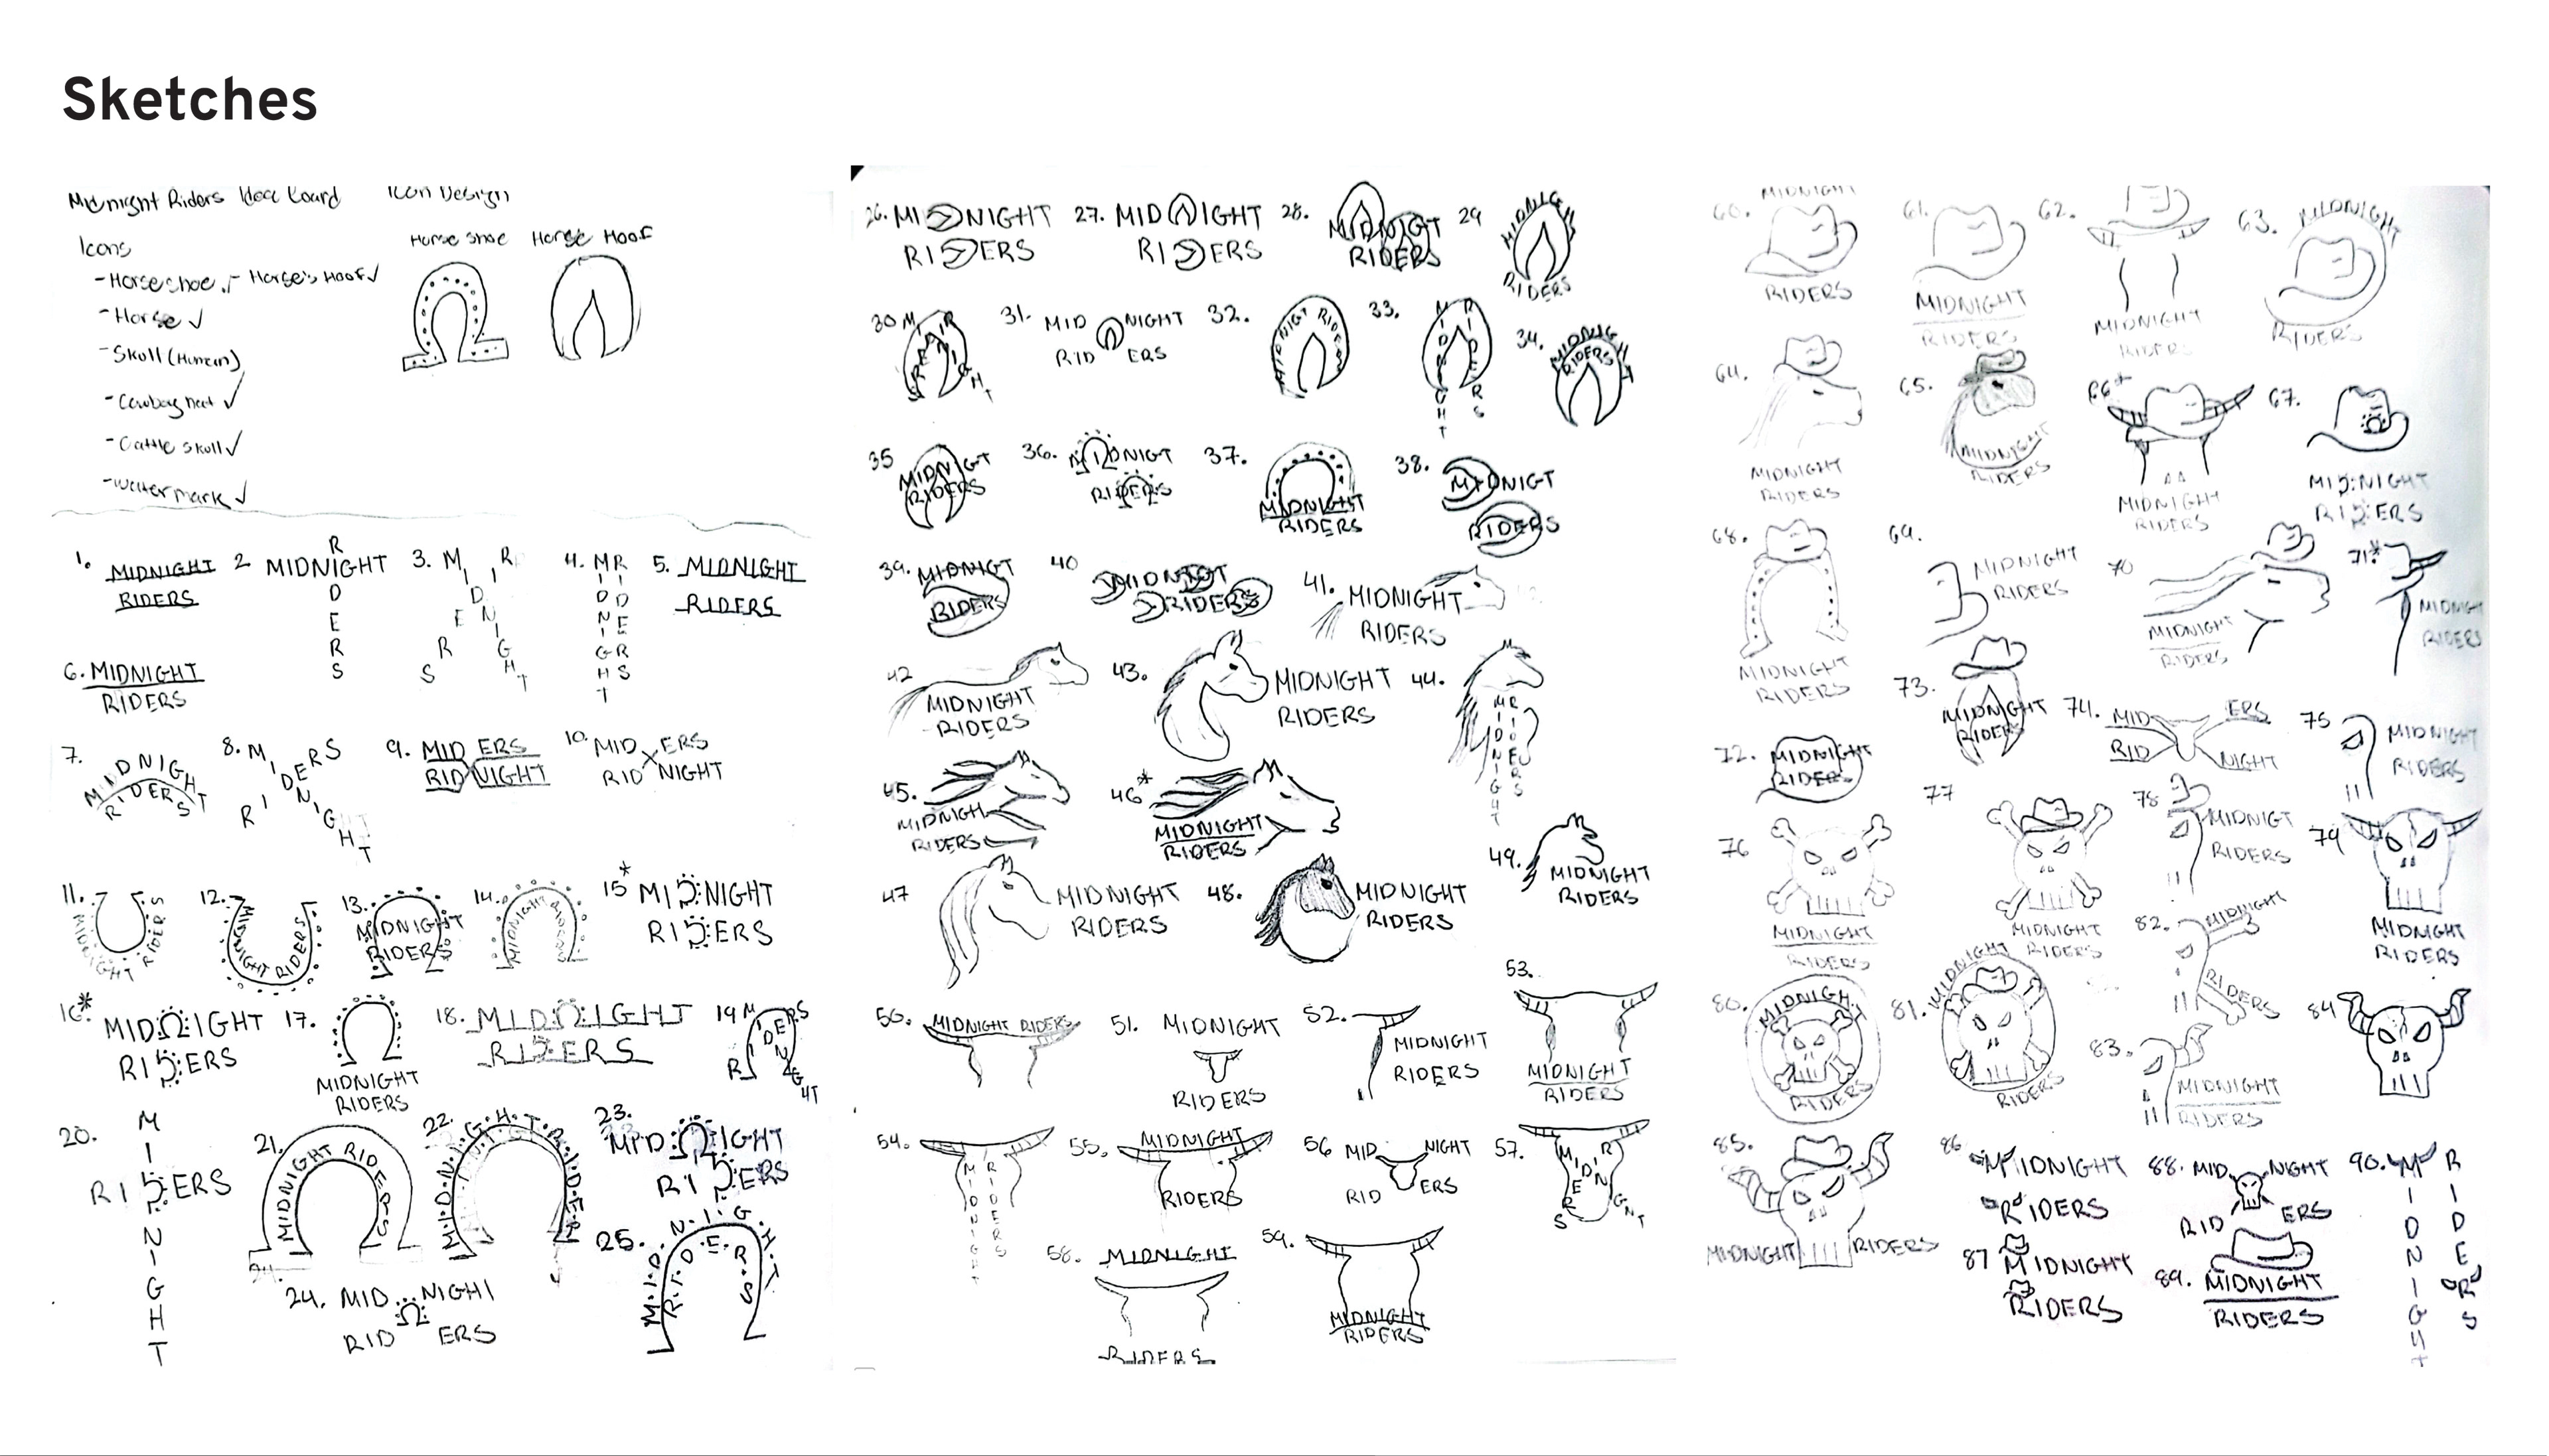 Sketches
Midnight Riders Idea board
Icon Design
Icons
- Horse shoe
- Horse's Hoof ✓
- Horse ✓
- Skull (Human)
- Cowboy hat ✓
- Cattle skull ✓
- watermark ✓
Horse shoe
Horse Hoof
1. MIDNIGHT
RIDERS
2 MIDNIGHT
RIDERS
3. MIDNIGHT
RIDERS
4. MIDNIGHT
RIDERS
5. MIDNIGHT
RIDERS
6. MIDNIGHT
RIDERS
7. MIDNIGHT
RIDERS
8. MIDNIGHT
RIDERS
9. MID ERS
RID NIGHT
10. MID ERS
RID NIGHT
11. MIDNIGHT RIDERS
12. MIDNIGHT RIDERS
13. MIDNIGHT
RIDERS
14. MIDNIGHT RIDERS
15* MIDNIGHT
RIDERS
16* MIDNIGHT
RIDERS
17. MIDNIGHT
RIDERS
18. MIDNIGHT
RIDERS
19 MIDNIGHT
RIDERS
20. MIDNIGHT
RIDERS
21. MIDNIGHT RIDERS
22. M.I.D.N.I.G.H.T.R.I.D.E.R
23. MIDNIGHT
RIDERS
24. MID NIGHT
RID ERS
25. M.I.D.N.I.G.H.T.
R.I.D.E.R.S
26. MIDNIGHT
RIDERS
27. MIDNIGHT
RIDERS
28. MIDNIGHT
RIDERS
29 MIDNIGH
RIDERS
30 MIDNIGHT
RIDERS
31. MID NIGHT
RID ERS
32. MIDNIGT RIDERS
33. MIDNIGHT
RIDERS
34. MIDNIGHT
RIDERS
35 MIDNIGT
RIDERS
36. MIDNIGT
RIDERS
37. MIDNIGHT
RIDERS
38. MIDNIGT
RIDERS
39. MIDNIGT
RIDERS
40 MIDNIGT
RIDERS
41. MIDNIGHT
RIDERS
42 MIDNIGHT
RIDERS
43. MIDNIGHT
RIDERS
44. MIDNIGHT
RIDERS
45. MIDNIGH
RIDERS
46* MIDNIGHT
RIDERS
47 MIDNIGHT
RIDERS
48. MIDNIGHT
RIDERS
49. MIDNIGHT
RIDERS
50. MIDNIGHT RIDERS
51. MIDNIGHT
RIDERS
52. MIDNIGHT
RIDERS
53. MIDNIGHT
RIDERS
54. MIDNIGHT
RIDERS
55. MIDNIGHT
RIDERS
56 MID NIGHT
RID ERS
57. MIDNIGHT
RIDERS
58. MIDNIGHT
RIDERS
59. MIDNIGHT
RIDERS
60. MIDNIGHT
RIDERS
61. MIDNIGHT
RIDERS
62. MIDNIGHT
RIDERS
63. MIDNIGHT
RIDERS
64. MIDNIGHT
RIDERS
65. MIDNIGHT
RIDERS
66* MIDNIGHT
RIDERS
67. MIDNIGHT
RIDERS
68. MIDNIGHT
RIDERS
69. MIDNIGHT
RIDERS
70 MIDNIGHT
RIDERS
71* MIDNIGHT
RIDERS
72. MIDNIGHT
RIDERS
73. MIDNIGHT
RIDERS
74. MID ERS
RID NIGHT
75 MIDNIGHT
RIDERS
76 MIDNIGHT
RIDERS
77 MIDNIGHT
RIDERS
78 MIDNIGT
RIDERS
79 MIDNIGHT
RIDERS
80. MIDNIGHT
RIDERS
81. MIDNIGHT
RIDERS
82. MIDNIGHT
RIDERS
83. MIDNIGHT
RIDERS
84
85. MIDNIGHT RIDERS
86 MIDNIGHT
RIDERS
87 MIDNIGHT
RIDERS
88. MID NIGHT
RID ERS
89. MIDNIGHT
RIDERS
90. MIDNIGHT
RIDERS